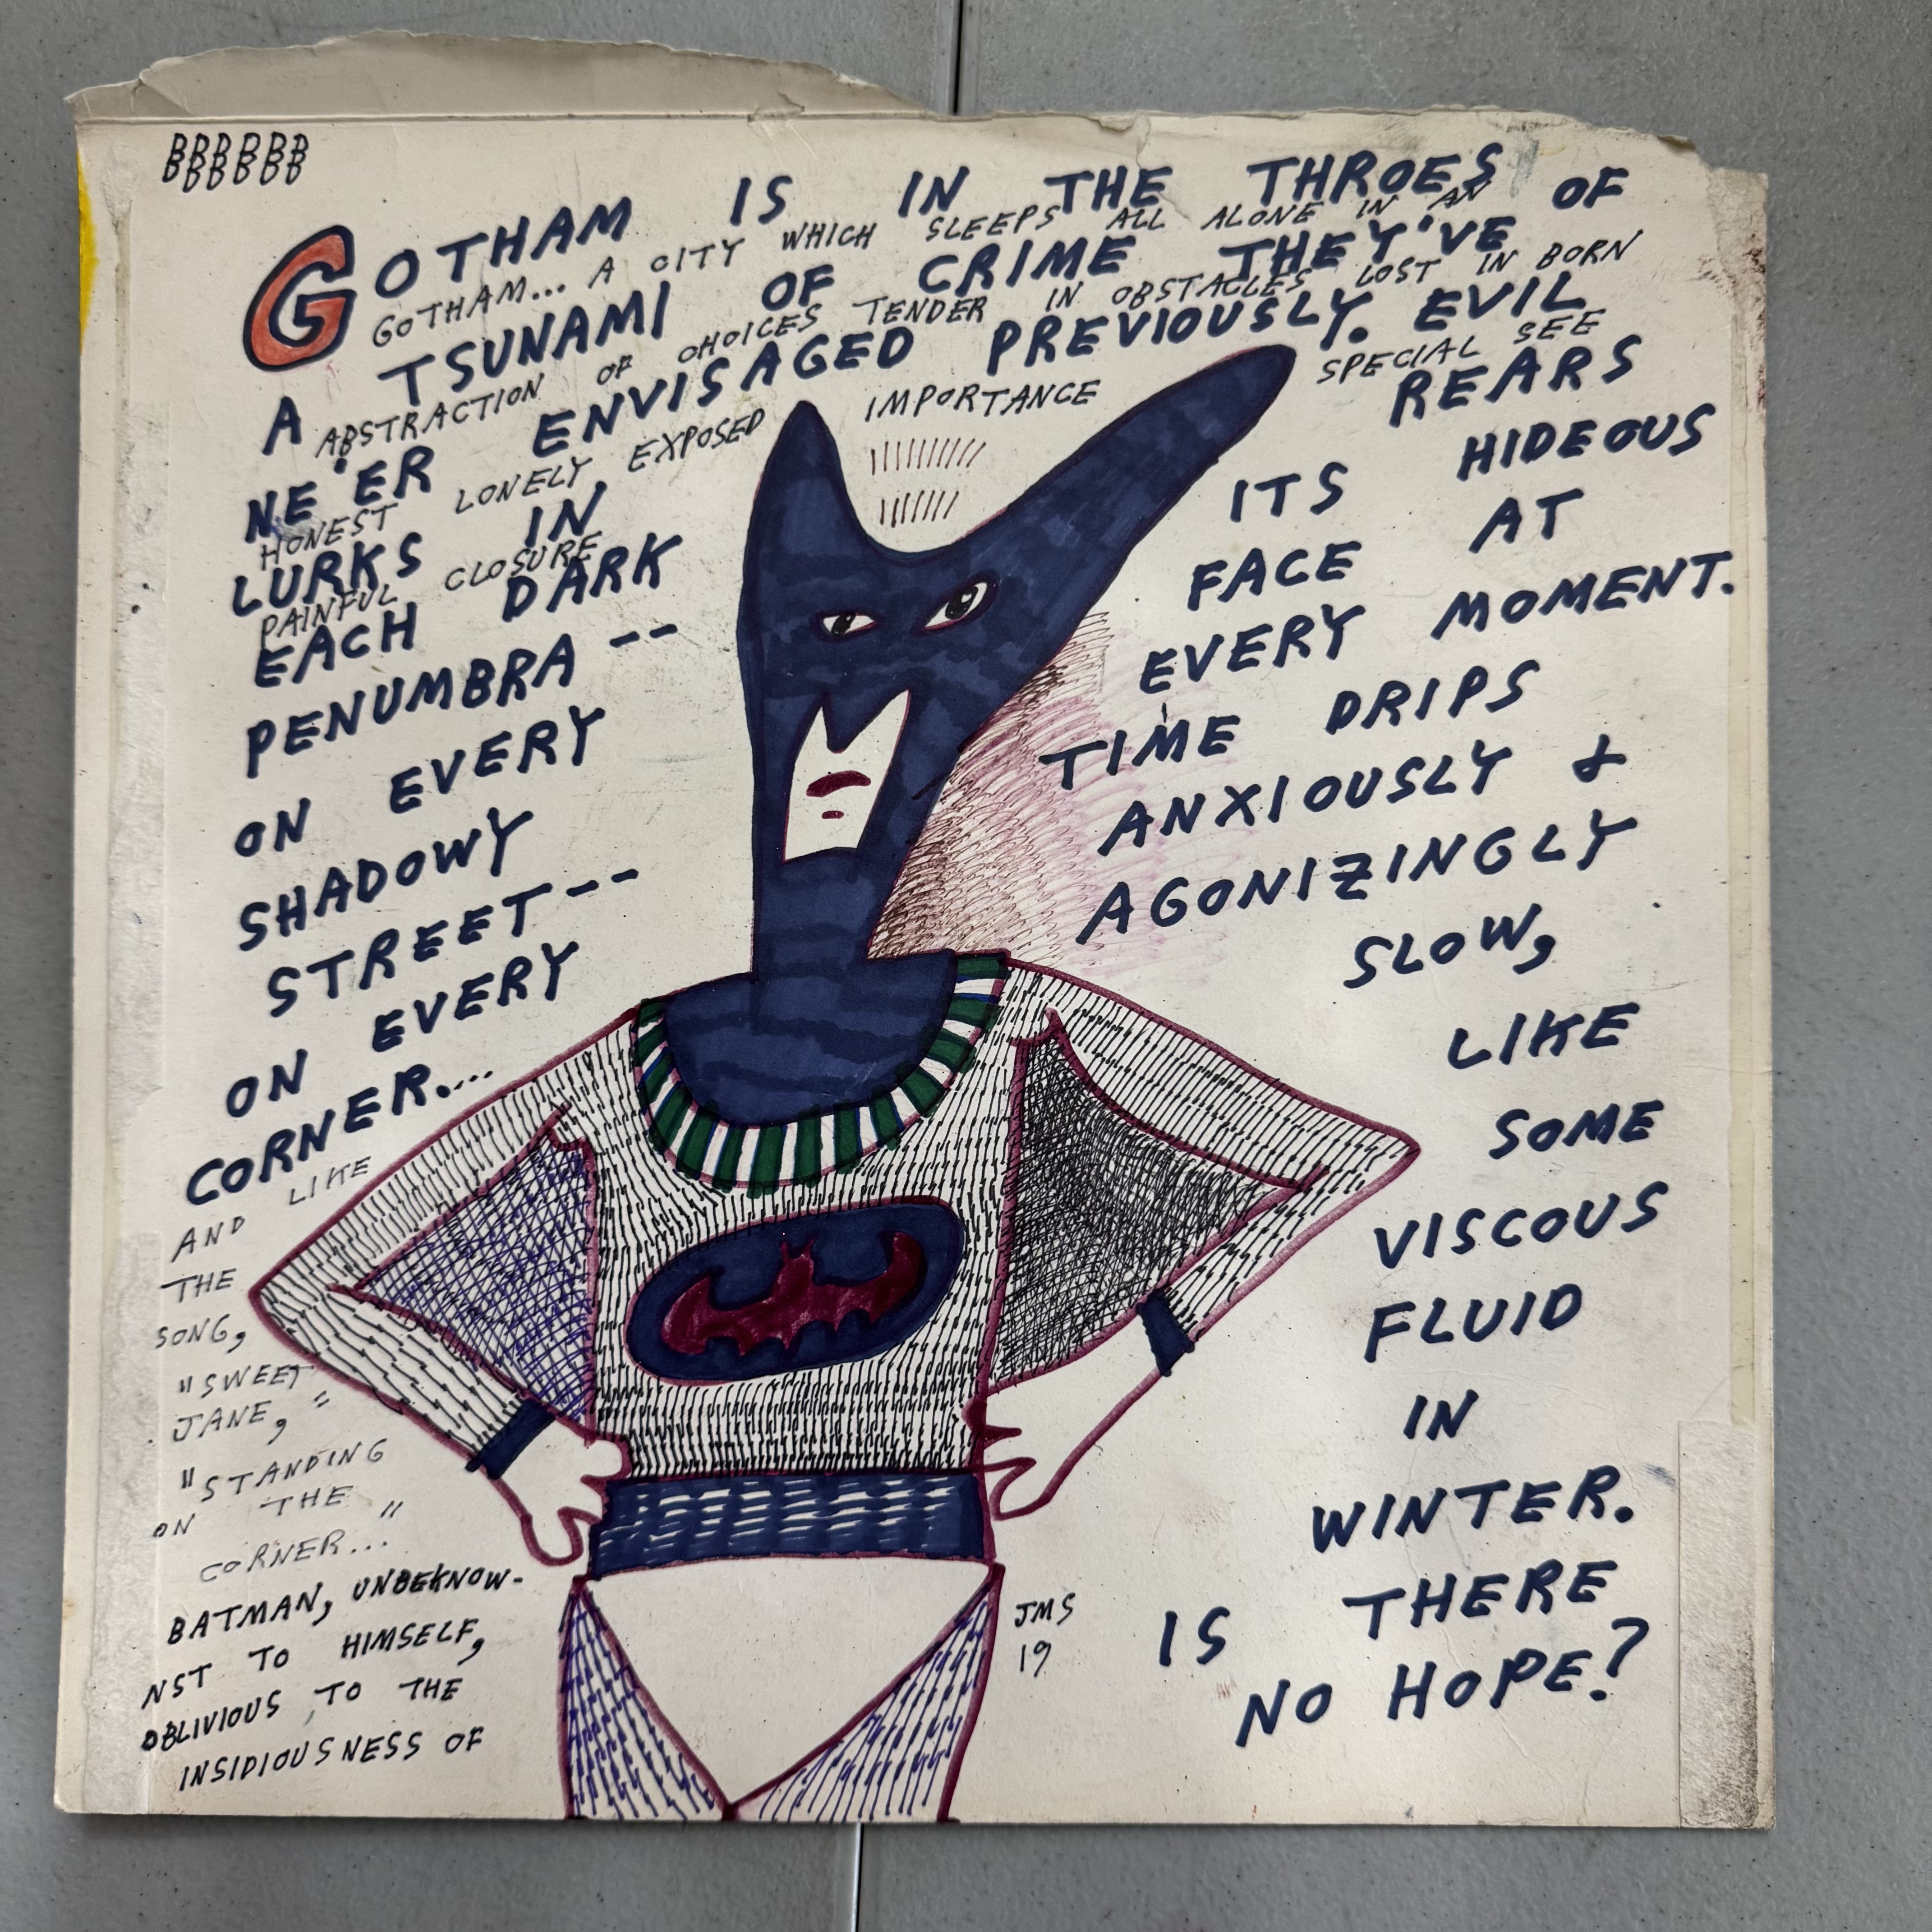 BBBBBB
BBBBBB
GOTHAM IS IN THE THROES OF
GOTHAM... A CITY WHICH SLEEPS ALL ALONE IN AN
A TSUNAMI OF CRIME THEY'VE
ABSTRACTION OF CHOICES TENDER IN OBSTACLES LOST IN BORN
NE'ER ENVISAGED PREVIOUSLY. EVIL
HONEST LONELY EXPOSED IMPORTANCE SPECIAL SEE
LURKS IN
PAINFUL CLOSURE
EACH DARK
PENUMBRA --
ON EVERY
SHADOWY
STREET --
ON EVERY
CORNER....
LIKE
AND
THE
SONG,
"SWEET
JANE,"
"STANDING
ON THE
CORNER..."
BATMAN, UNBEKNOW-
NST TO HIMSELF,
OBLIVIOUS TO THE
INSIDIOUSNESS OF
REARS
ITS HIDEOUS
FACE AT
EVERY MOMENT.
TIME DRIPS
ANXIOUSLY &
AGONIZINGLY
SLOW,
LIKE
SOME
VISCOUS
FLUID
IN
WINTER.
IS THERE
NO HOPE?
JMS
19